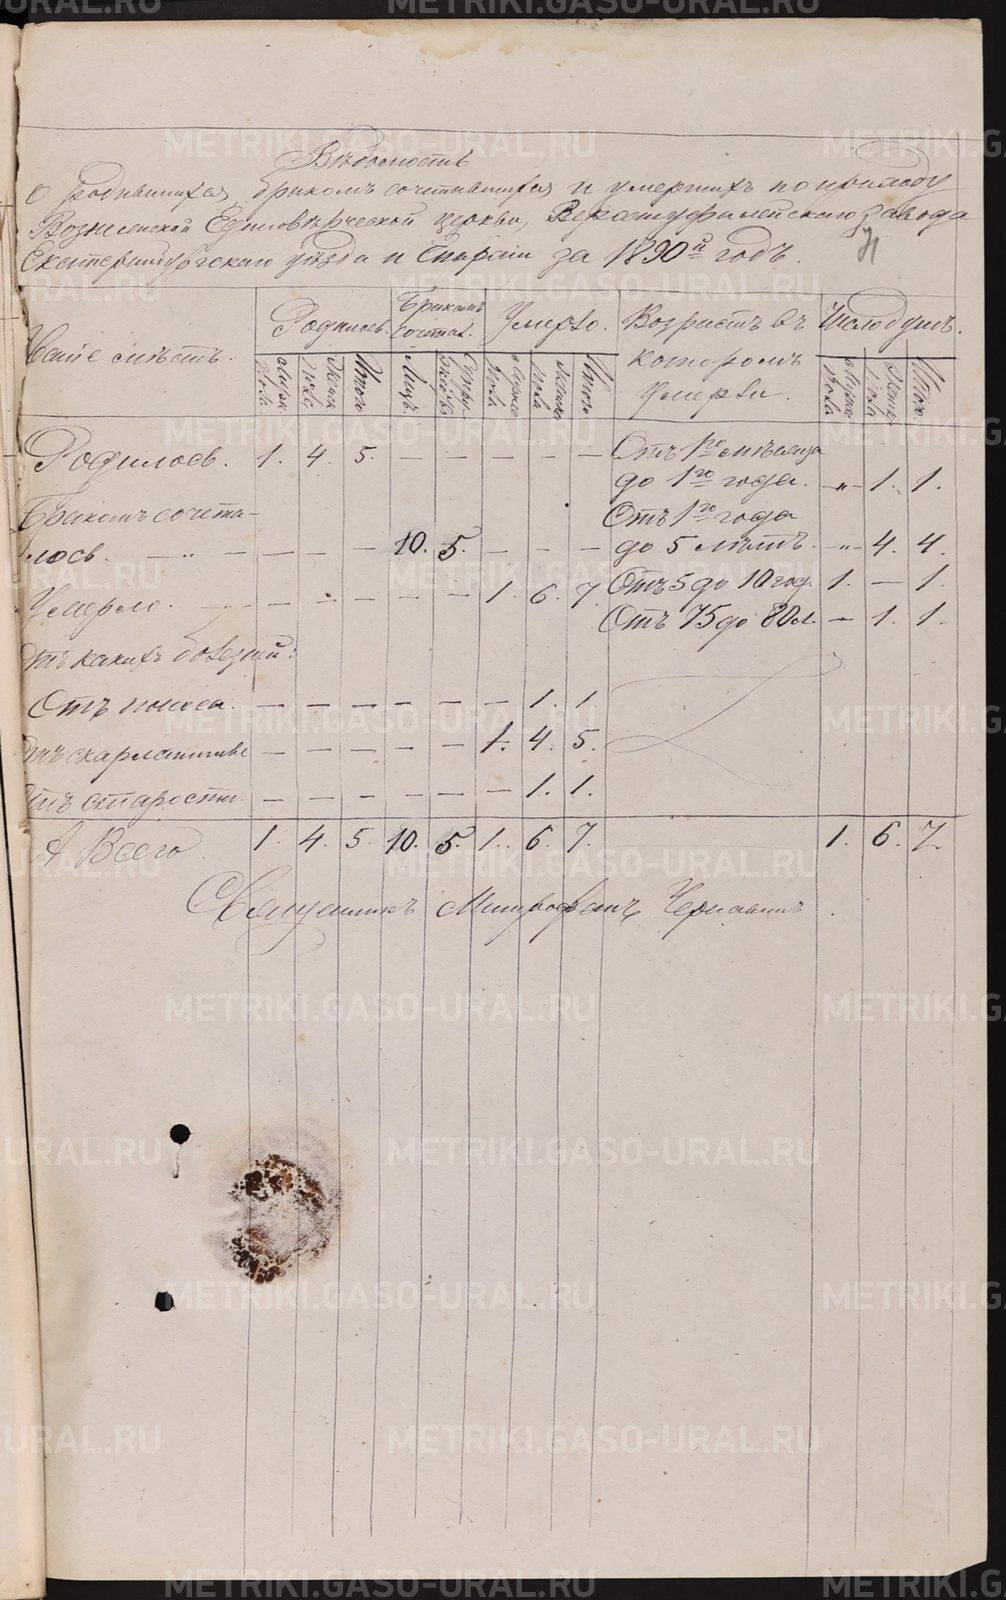 Вѣдомость
о родившихся, бракомъ сочетавшихся и умершихъ по приходу
Вознесенской Единовѣрческой церкви, Верхотуфалейскаго завода
Екатеринбургскаго уѣзда и Епархіи за 1890й годъ.
Родилось. Бракомъ сочетал. Умерло. Возрастъ въ которомъ умерли. Число душъ.
мужск пола женск пола Итого Лицъ. мужска пола женска пола Итого мужска пола женска пола Итого.
Родилось. 1. 4. 5. — — — — — Отъ 1го мѣсяца
до 1го года. —„— 1. 1.
Бракомъ сочета-
Отъ 1го года
лось. — „ — — — — 10. 5. — — — до 5 лѣтъ. —„— 4. 4.
Умерло. — — — — — — 1. 6. 7. Отъ 5 до 10 год. 1. — 1.
Отъ 75 до 80 л. — 1. 1.
Отъ какихъ болѣзней:
Отъ поноса. — — — — — — 1. 1.
Отъ скарлатины — — — — — 1. 4. 5.
Отъ старости. — — — — — — 1. 1.
А Всего 1. 4. 5. 10. 5. 1. 6. 7. 1. 6. 7.
Священникъ Митрофанъ Чернавинъ.
METRIKI.GASO-URAL.RU